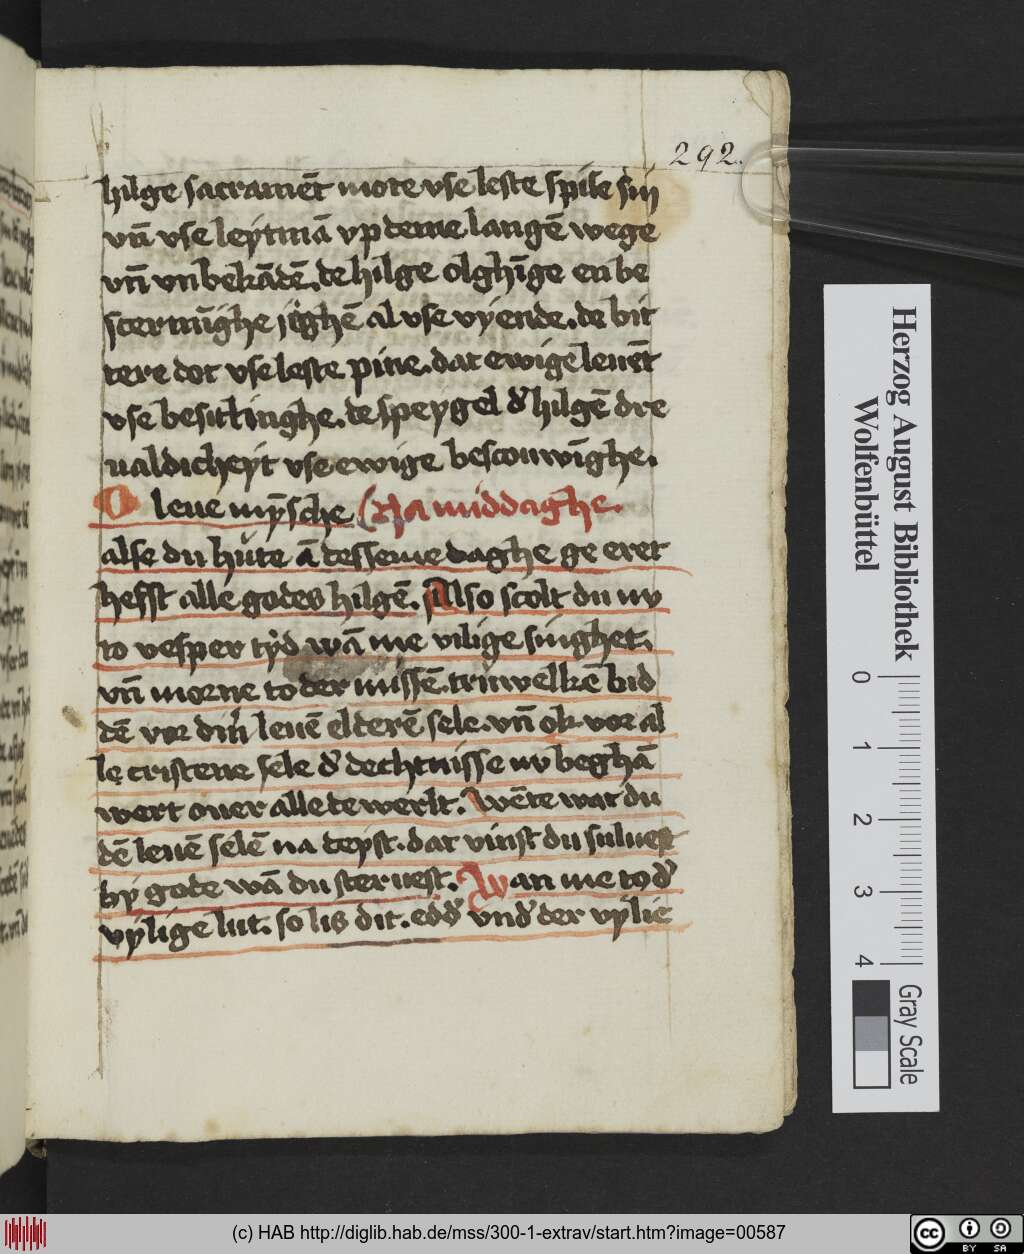 292.
hilge sacramēt mote vse leste spise sin
vn̄ vse leytmā vp deme langē wege
vn̄ vnbekādē. de hilge olghīge en be
scermīghe jēghē al vse vyende. de bit
tere dot vse leste pine. dat ewige leuēt
vse besittinghe. de speygel d' hilgē dre
ualdicheyt vse ewige bescouwīghe.
O leue mȳsche (Na middaghe.
alse du hute ā desseme daghe ge eret
hefst alle godes hilgē. Also scolt du nv
to vesper tyd wā me vilige singhet.
vn̄ morne to der missē. truwelkē bid
dē vor din leuē elderē sele. vn̄ ok vor al
le cristene sele d' dechtnisse nv beghā
wert ouer alle de werlt. Wēte wat du
dē leuē selē na deyst. dat vinst du sulues
by gode wā du steruest. Wan me to d'
vylige lut. so lis dit. edd' vnd' der vylie
Herzog August Bibliothek
Wolfenbüttel
0 1 2 3 4
Gray Scale
(c) HAB http://diglib.hab.de/mss/300-1-extrav/start.htm?image=00587
cc BY SA